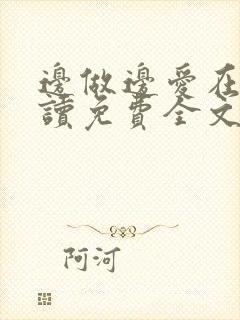 邊做邊愛在
讀免費全文
阿河